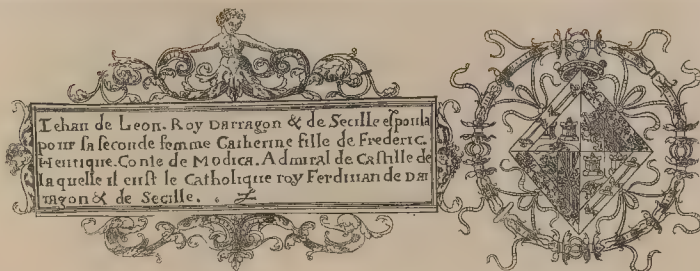 Iehan de Leon. Roy Darragon & de Secille espousa
pour sa seconde femme Catherine fille de Frederic.
Hentique. Conte de Modica. Admiral de Castille de
laquelle il eust le Catholique roy Ferdinan de Da
ragon & de Secille.